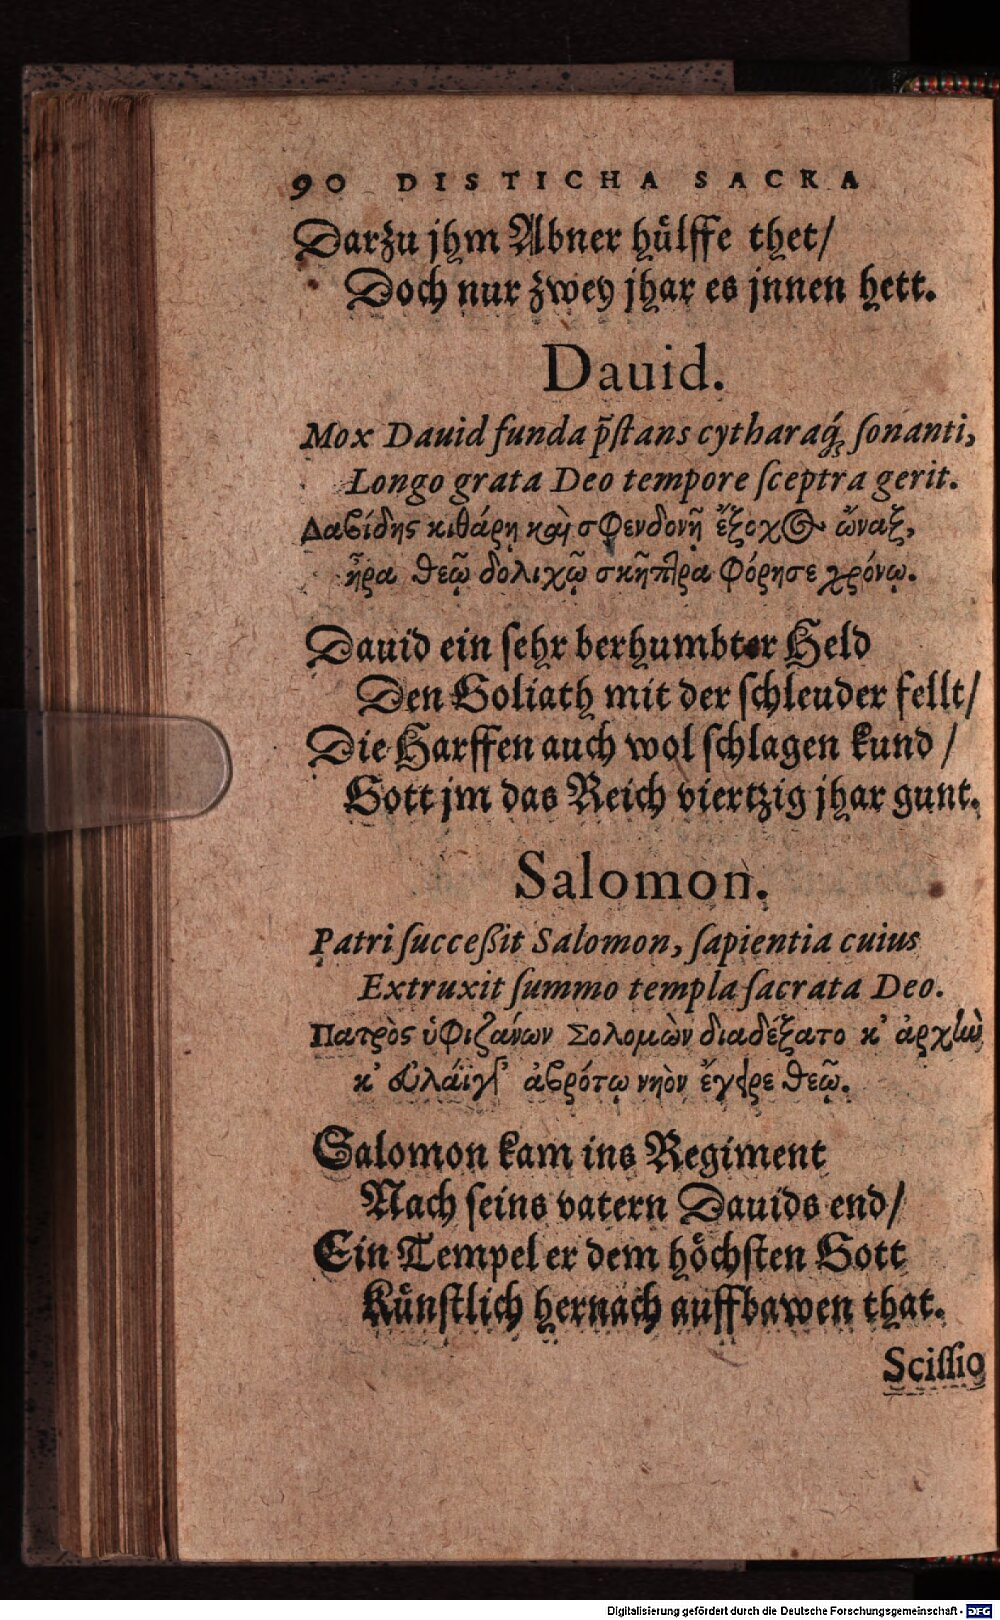 90 DISTICHA SACRA
Darzu jhm Abner huͤlffe thet/
Doch nur zwey jhar es jnnen hett.
Dauid.
Mox Dauid funda p̄ſtans cytharaq́ꝫ ſonanti,
Longo grata Deo tempore ſceptra gerit.
Δαβίδης κιθάρῃ καὶ σφενδονῇ ἔξοχος ὤναξ,
ἦρα θεῷ δολιχῷ σκῆπτρα φόρησε χρόνῳ.
Dauid ein ſehr berhumbter Held
Den Goliath mit der ſchleuder fellt/
Die Harffen auch wol ſchlagen kund /
Gott jm das Reich viertzig jhar gunt.
Salomon.
Patri ſucceßit Salomon, ſapientia cuius
Extruxit ſummo templa ſacrata Deo.
Πατρὸς ὑφιζάνων Σολομὼν διαδέξατο κ' ἀρχὴν
κ' ἀβρότῳ νηὸν ἔγειρε θεῷ.
Salomon kam ins Regiment
Nach ſeins vatern Dauids end/
Ein Tempel er dem hoͤchſten Gott
Kuͤnſtlich hernach auffbawen that.
Sciſſio
Digitalisierung gefördert durch die Deutsche Forschungsgemeinschaft - DFG